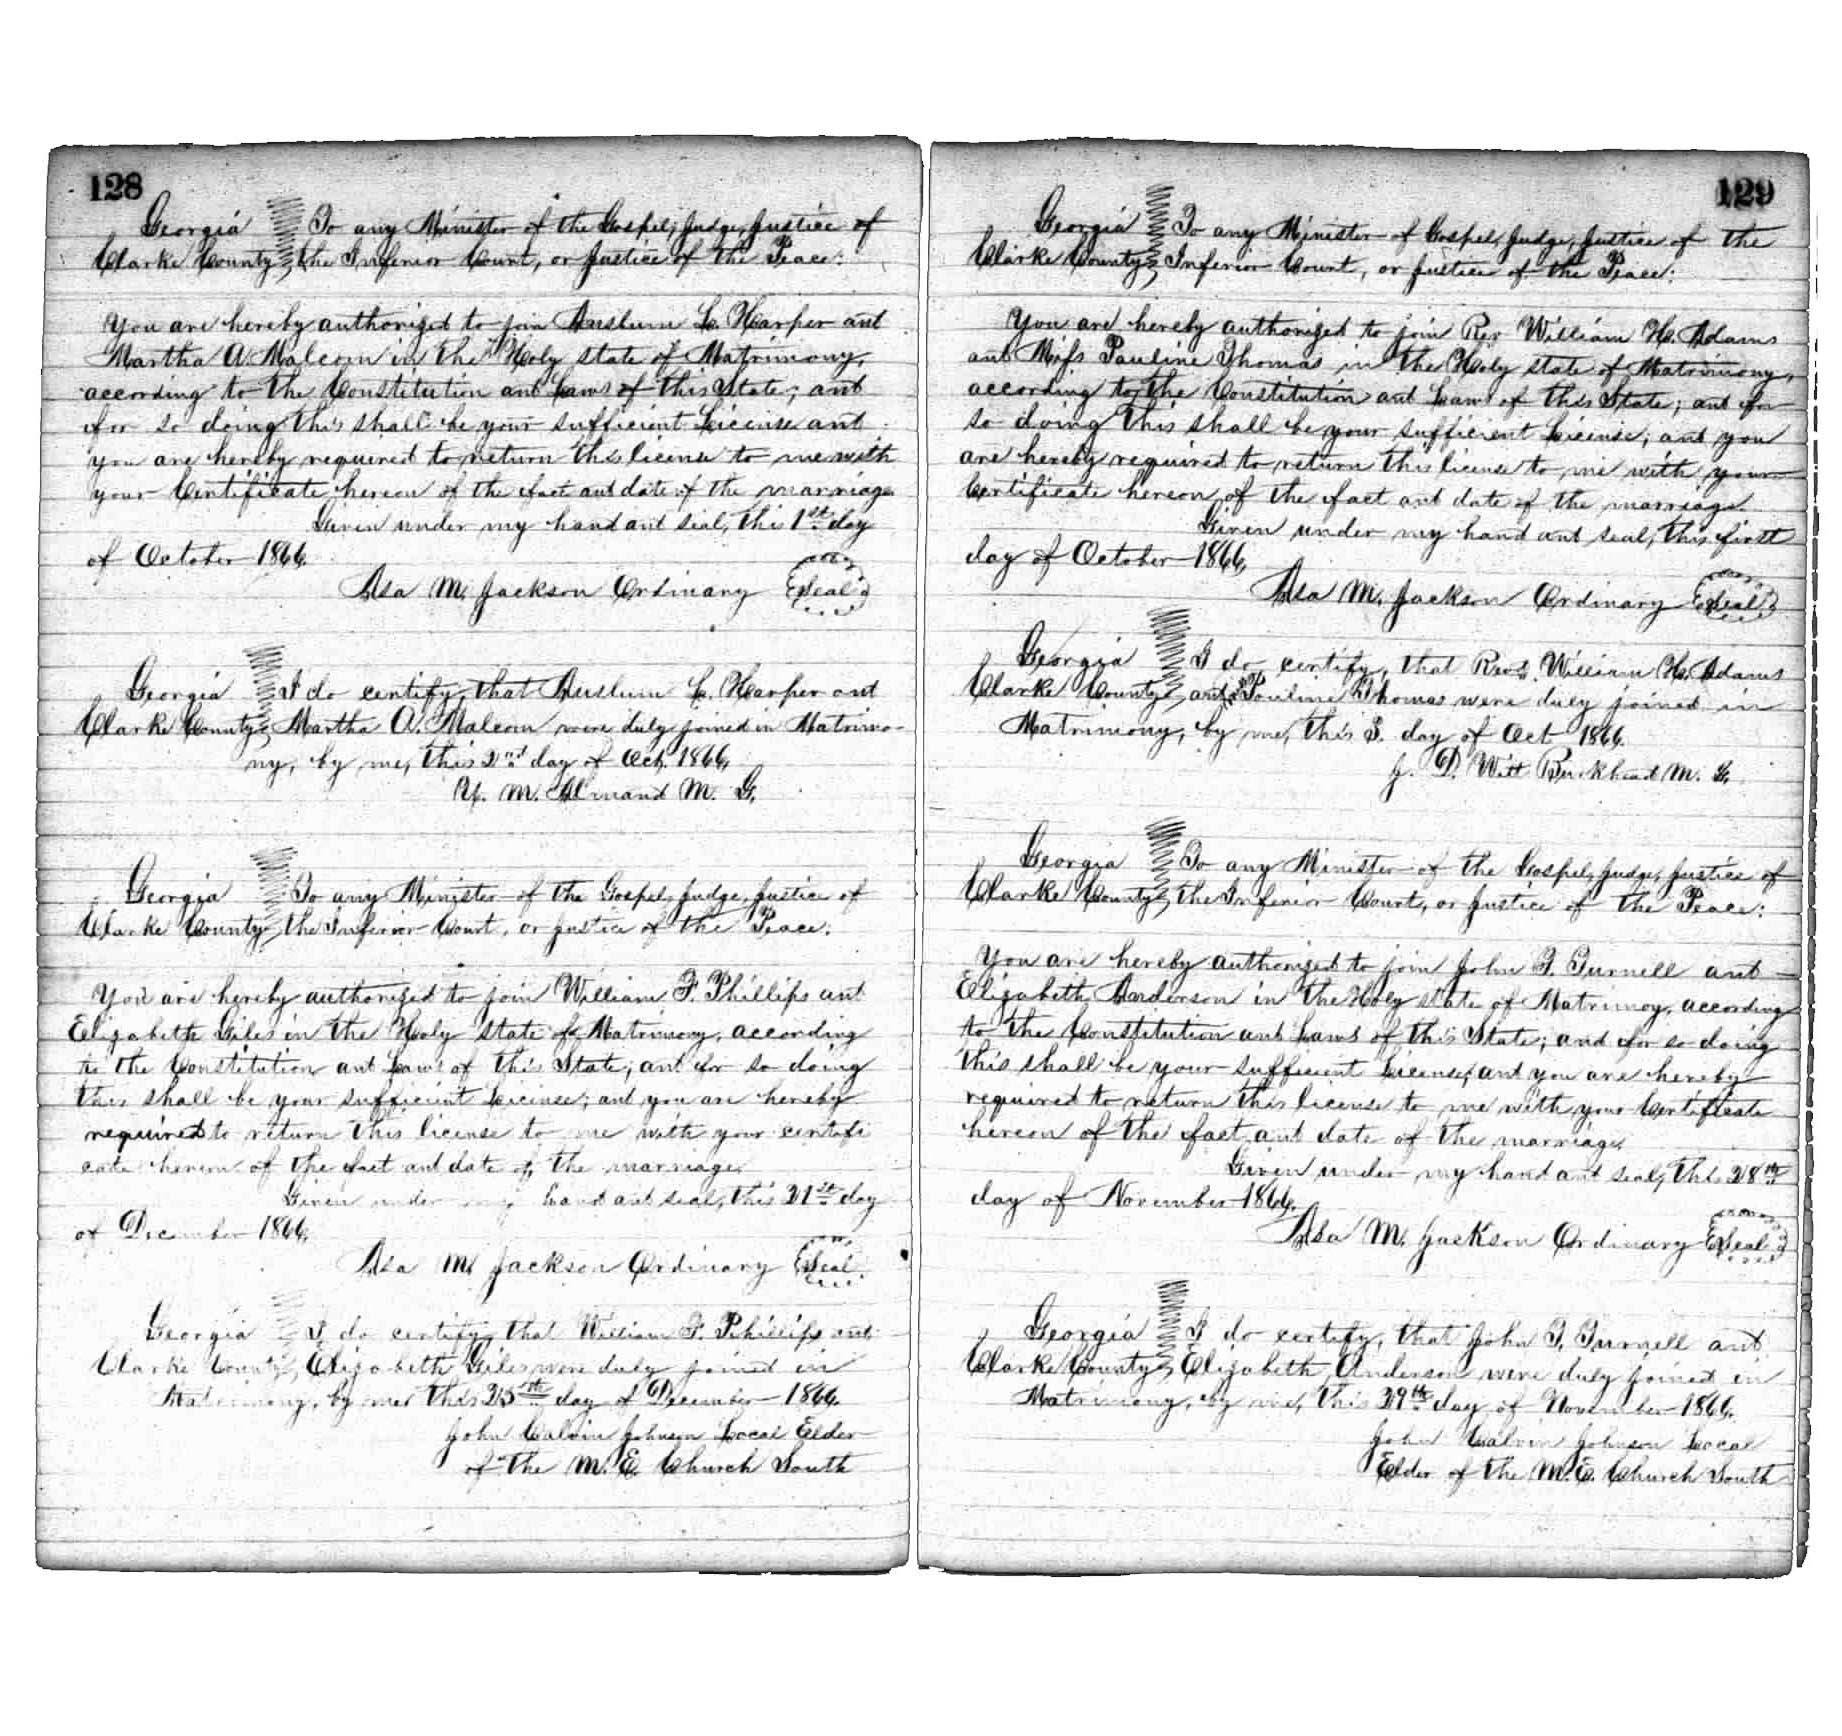 128
Georgia To any Minister of the Gospel, Judge, Justice of
Clarke County, the Inferior Court, or Justice of the Peace:
You are hereby authorized to join L. Harper and
Martha A. Malcom in the Holy state of Matrimony,
according to the Constitution and Laws of this State; and
for so doing this shall be your sufficient License and
you are hereby required to return this license to me with
your Certificate hereon of the fact and date of the marriage
Given under my hand and seal, this 1st day
of October 1866.
Asa M. Jackson Ordinary Seal
Georgia I do certify, that L. Harper and
Clarke County, Martha A. Malcom were duly joined in Matrimo-
ny, by me, this 2nd day of Oct. 1866,
M. Almand M. G.
Georgia To any Minister of the Gospel, Judge, Justice of
Clarke County, the Inferior Court, or Justice of the Peace:
You are hereby authorized to join William F. Phillips and
Elizabeth Giles in the Holy state of Matrimony, according
to the Constitution and Laws of this State; and for so doing
this shall be your sufficient License; and you are hereby
required to return this license to me with your certifi
cate hereon of the fact and date of the marriage.
Given under my hand and seal, this 21st day
of December 1866.
Asa M. Jackson Ordinary Seal
Georgia I do certify, that William F. Phillips and
Clarke County, Elizabeth Giles were duly joined in
Matrimony, by me this 25th day of December 1866.
John Calvin Johnson Local Elder
of the M. E. Church South
129
Georgia To any Minister of Gospel, Judge, Justice of the
Clarke County, Inferior Court, or Justice of the Peace:
You are hereby authorized to join Rev William H. Adams
and Miss Pauline Thomas in the Holy state of Matrimony,
according to the Constitution and Laws of this State; and for
so doing this shall be your sufficient License; and you
are hereby required to return this license to me with your
Certificate hereon, of the fact and date of the marriage
Given under my hand and seal, this first
day of October 1866,
Asa M. Jackson Ordinary Seal
Georgia I do certify, that Revd. William H. Adams
Clarke County, and Miss Pauline Thomas were duly joined in
Matrimony, by me, this day of Oct 1866.
J. D. Witt Burkhead M. G.
Georgia To any Minister of the Gospel, Judge, Justice of
Clarke County, the Inferior Court, or Justice of the Peace:
You are hereby authorized to join John T. Turnell and
Elizabeth Anderson in the Holy state of Matrimoy, according
to the Constitution and Laws of this State; and for so doing
this shall be your sufficient License; and you are hereby
required to return this license to me with your Certificate
hereon of the fact and date of the marriage.
Given under my hand and seal, this 28th
day of November 1866.
Asa M. Jackson Ordinary Seal
Georgia I do certify, that John T. Turnell and
Clarke County, Elizabeth Anderson were duly joined in
Matrimony, by me, this 29th day of November 1866.
John Calvin Johnson Local
Elder of the M. E. Church South